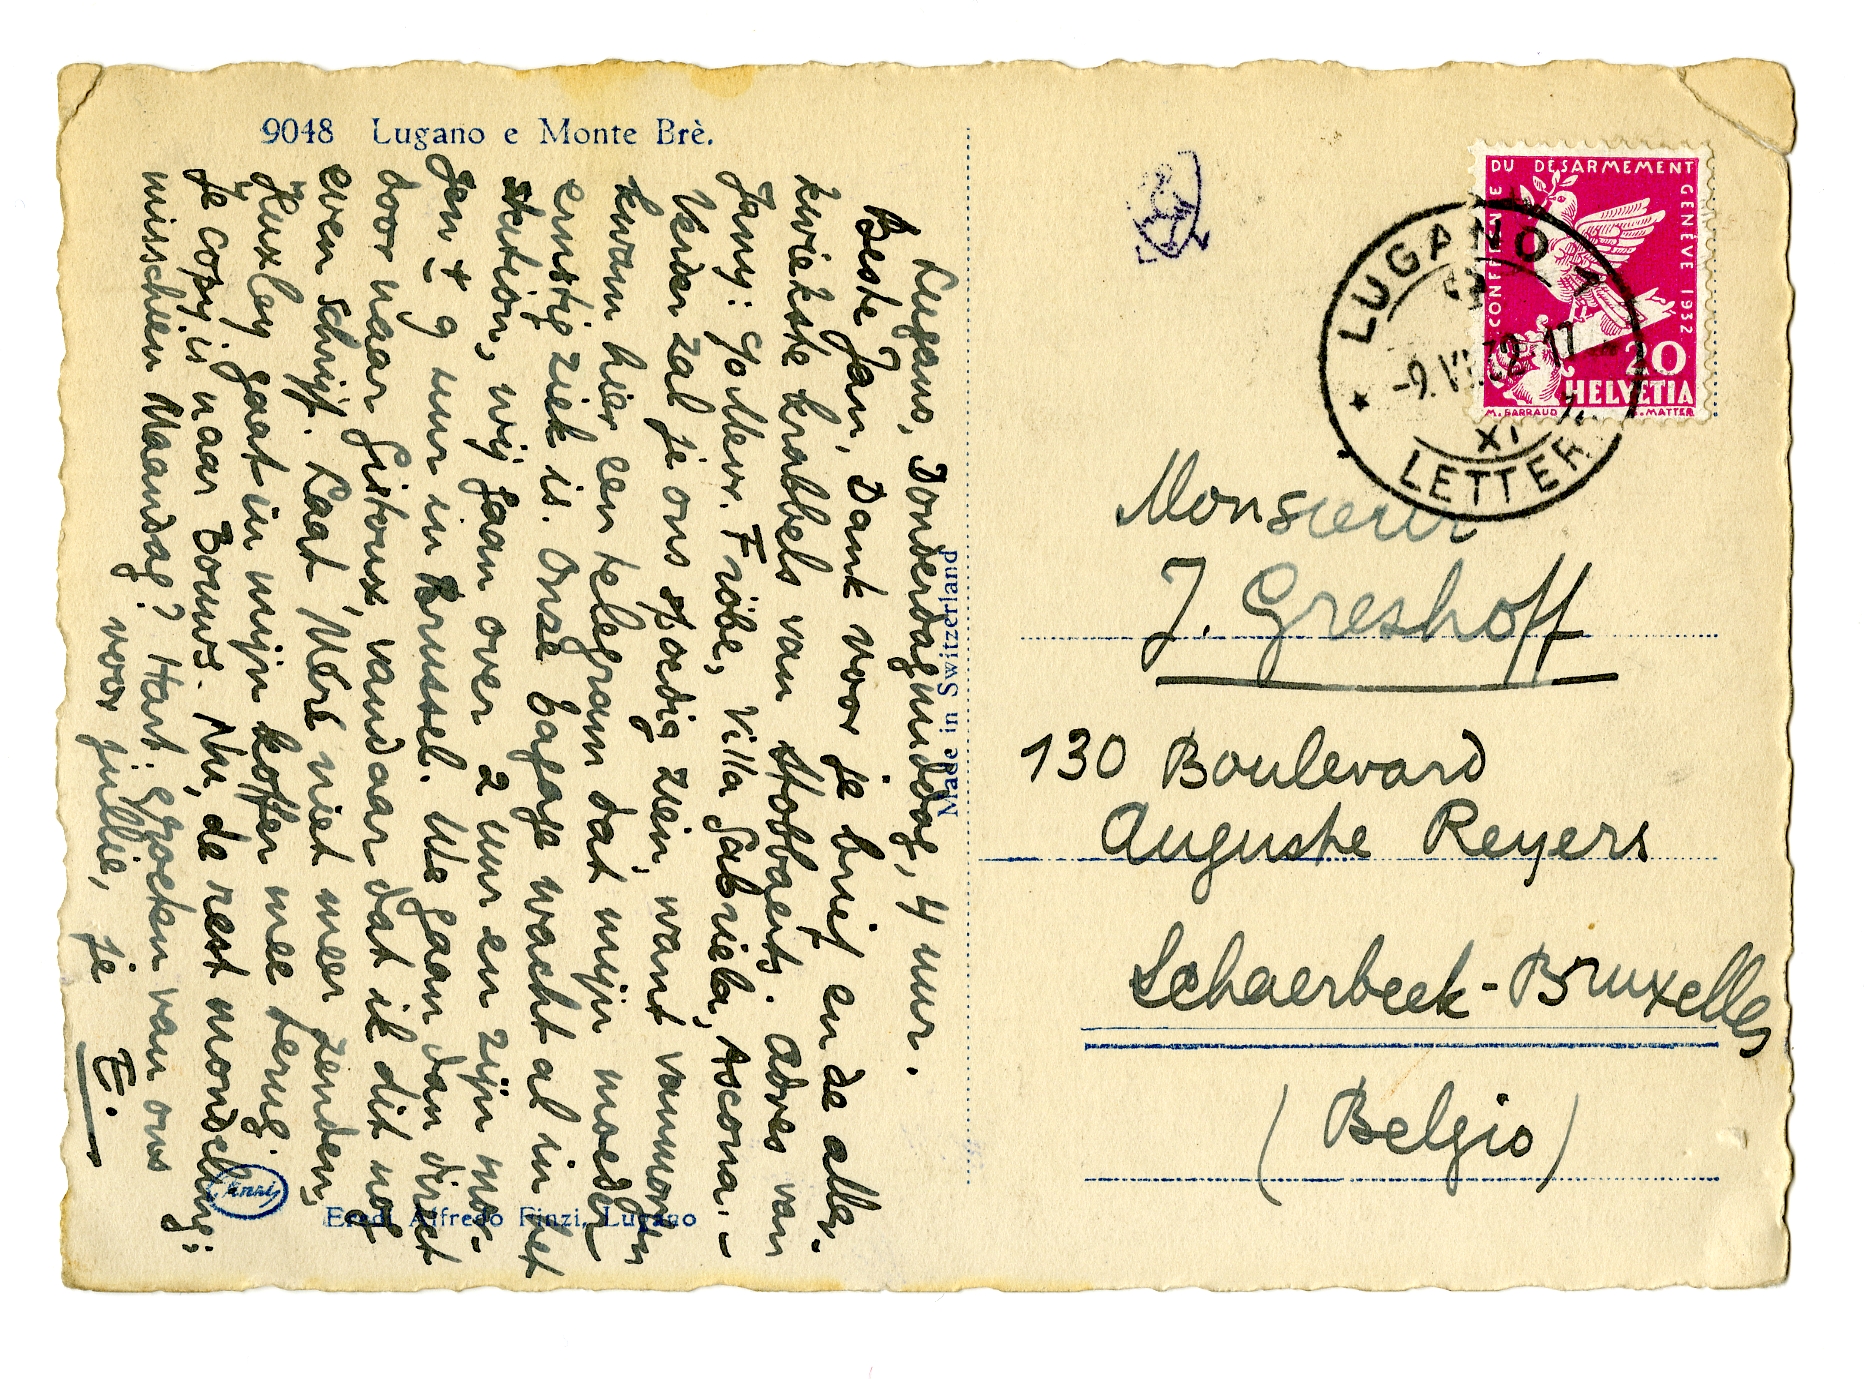 9048 Lugano e Monte Brè.
Lugano, Donderdagmiddag, 4 uur.
Beste Jan, Dank voor je brief en de aller-
kwiekste krabbels van Stobbaerts. Adres van
Jany: Gollwr. Fröbe, Villa Gabriela, Ascona. –
Verder zal je ons spoedig zien, want vanmorgen
kwam hier een telegram dat mijn moeder
ernstig ziek is. Onze bagage wacht al in het
station, wij gaan over 2 uur en zijn mor-
gen ± 9 uur in Brussel. We gaan dan direct
door naar Gistoux, vandaar dat ik dit nog
even schrijf. Laat 'Meré niet meer zenden,
Huxley gaat in mijn koffer mee terug.
Je copy is naar Bouws. Nu, de rest mondeling:
misschien Maandag? Hart. groeten van ons
voor jullie, je
E.
Eredi Alfredo Finzi, Lugano
Made in Switzerland
CONFERENCE DU DÉSARMEMENT GENÈVE 1932
20
HELVETIA
M. BARRAUD
MATTER
LUGANO 1
-9.VI.32.17
XI
LETTER
Monsieur
J. Greshoff
130 Boulevard
Auguste Reyers
Schaerbeek-Bruxelles
(Belgio)